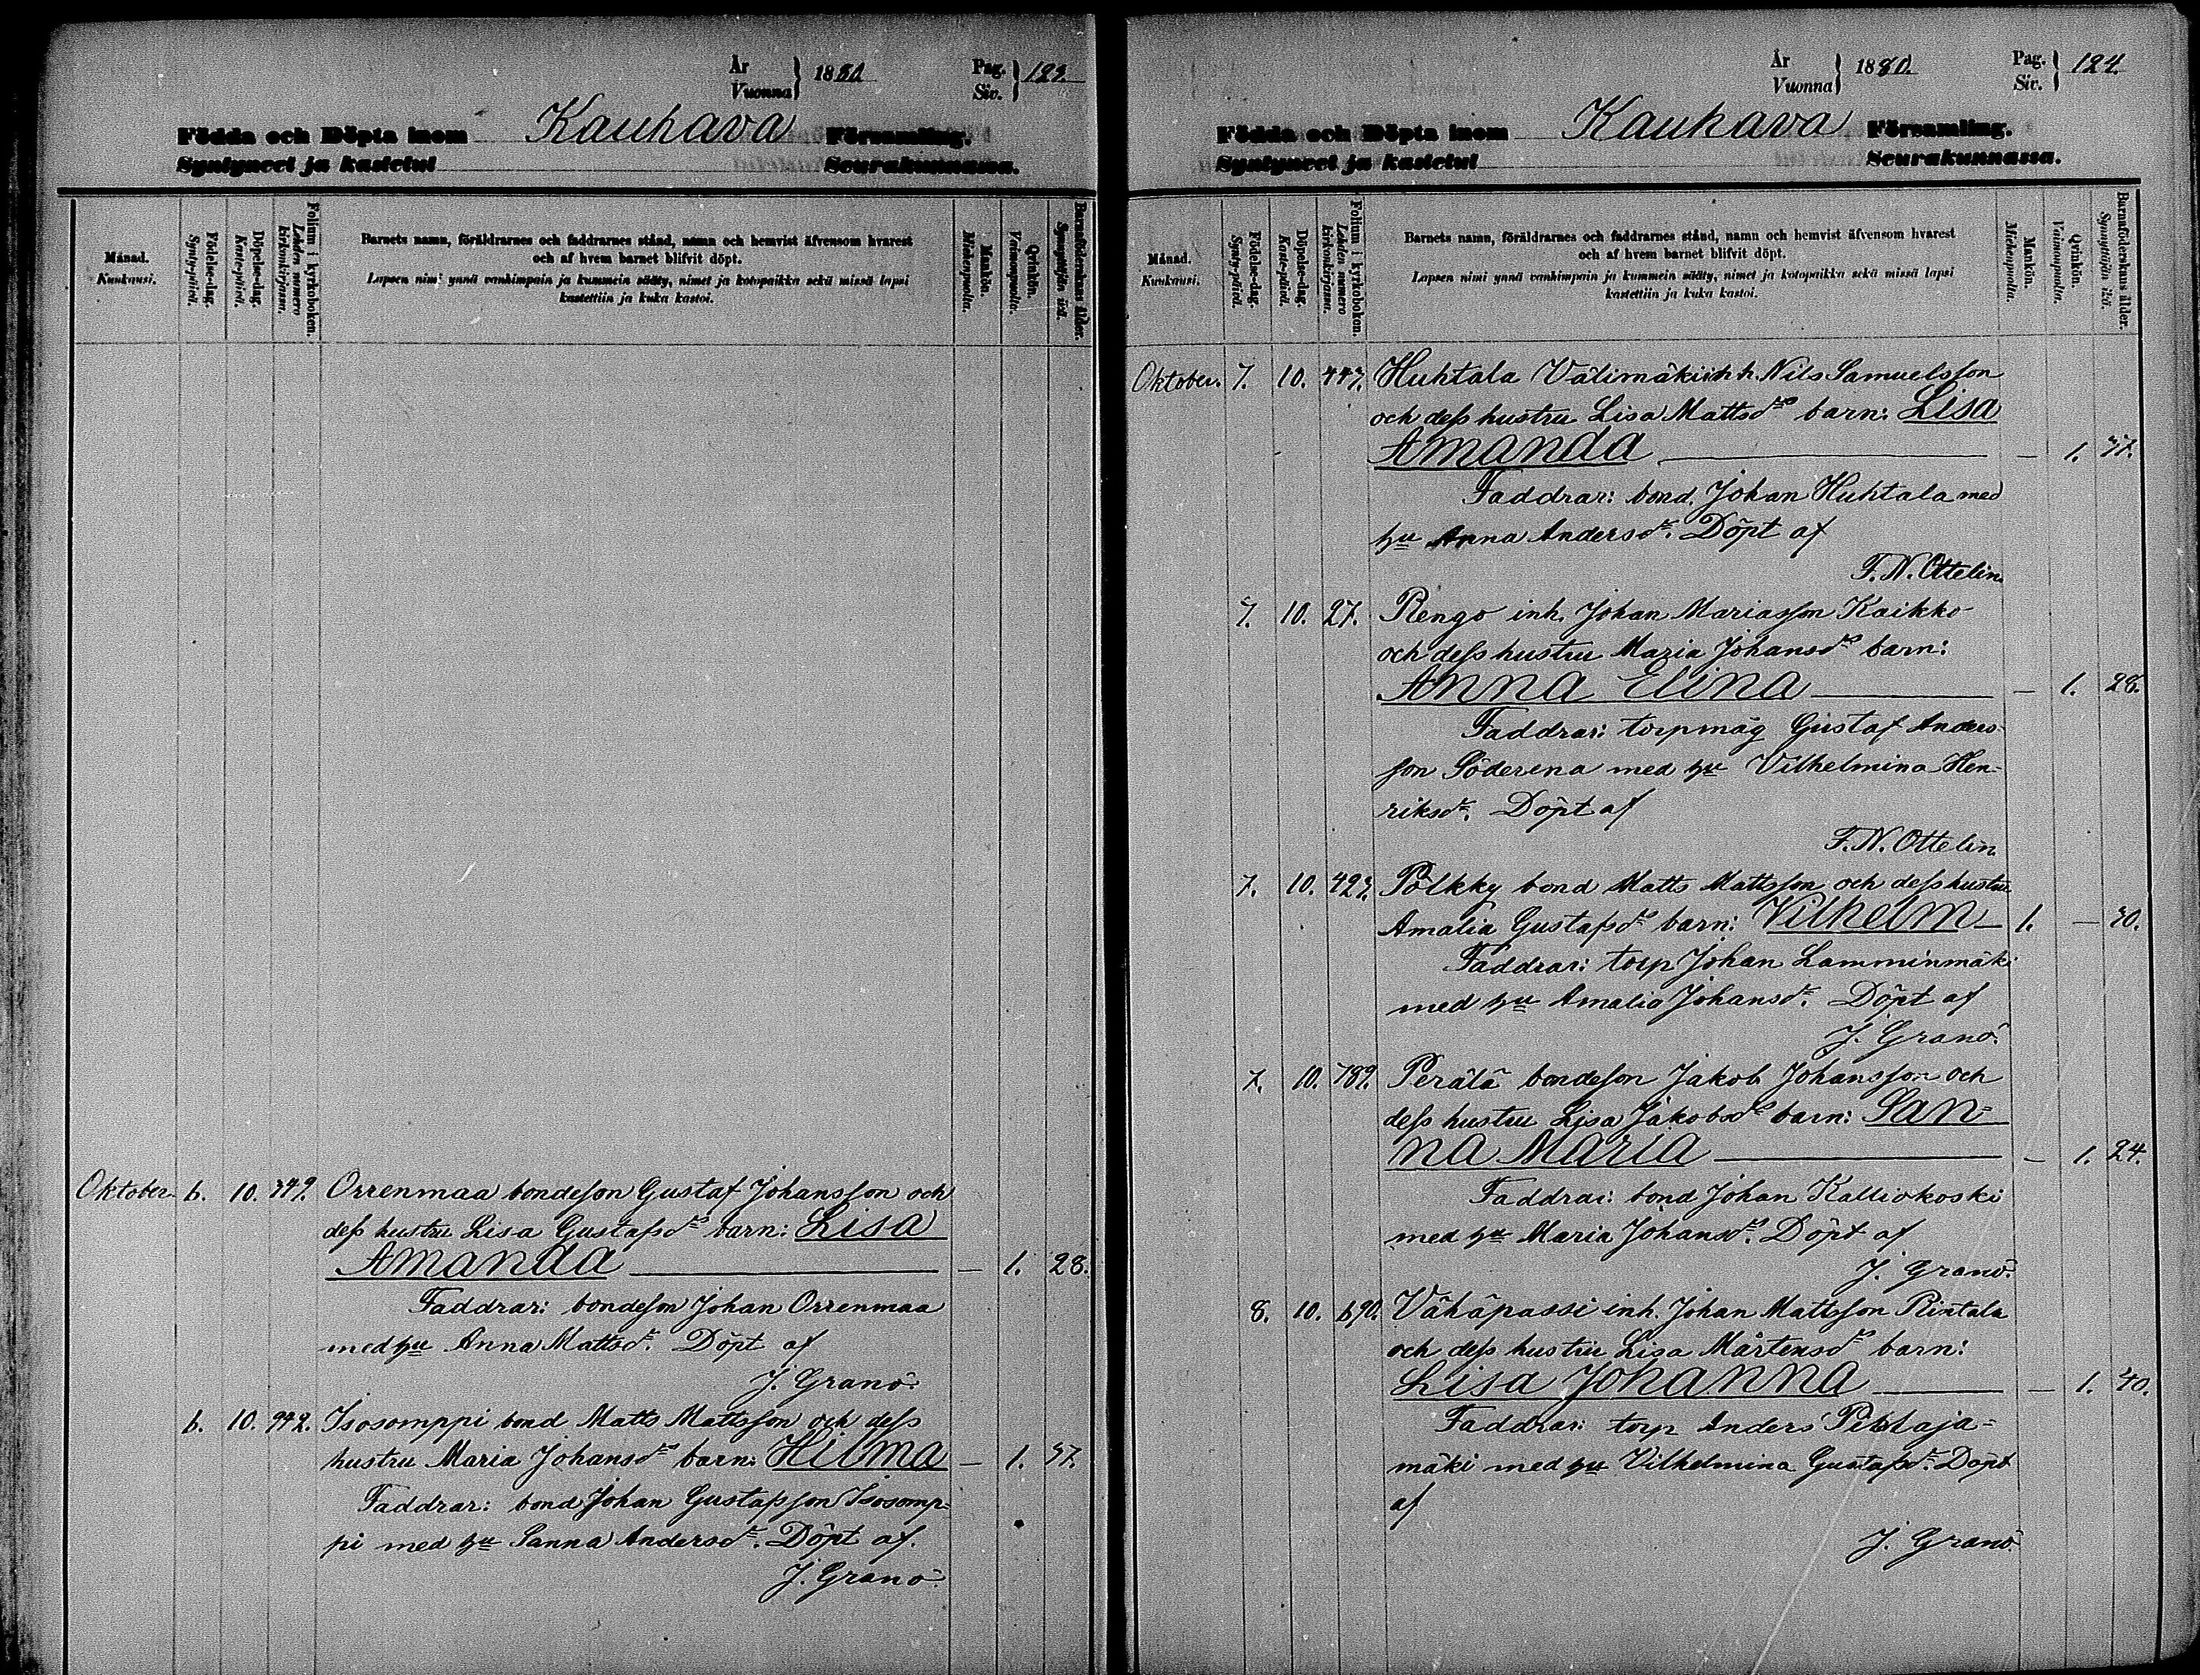 År
Vuonna } 1880 Pag.
Siv. } 123.
Födda och Döpta inom Kauhava Församling.
Syntyneet ja kastetut Seurakunnassa.
Månad.
Kuukausi.
Födelse-dag.
Synty-päivä.
Döpelse-dag.
Kaste-päivä.
Folium i kyrkoboken.
Lehden numero
kirkonkirjassa.
Barnets namn, föräldrarnes och faddrarnes stånd, namn och hemvist äfvensom hvarest
och af hvem barnet blifvit döpt.
Lapsen nimi ynnä vanhimpain ja kummein sääty, nimet ja kotopaikka sekä missä lapsi
kastettiin ja kuka kastoi.
Mankön.
Miehenpuolia.
Qvinkön.
Vaimonpuolia.
Barnaföderskans ålder.
Synnyttäjän ikä.
Oktober. 6. 10. 349. Orrenmaa bondeson Gustaf Johansson och
dess hustru Lisa Gustafsdrs barn: Lisa
Amanda — 1. 28.
Faddrar: bondeson Johan Orrenmaa
med hu Anna Mattsdr. Döpt af
J. Granö.
6. 10. 942. Isosomppi bond Matts Mattsson och dess
hustru Maria Johansdrs barn: Hilma — 1. 37.
Faddrar: bond Johan Gustafsson Isosomp-
pi med hu Sanna Andersdr. Döpt af.
J. Granö.
År
Vuonna } 1880. Pag.
Siv. } 124.
Födda och Döpta inom Kauhava Församling.
Syntyneet ja kastetut Seurakunnassa.
Månad.
Kuukausi.
Födelse-dag.
Synty-päivä.
Döpelse-dag.
Kaste-päivä.
Folium i kyrkoboken.
Lehden numero
kirkonkirjassa.
Barnets namn, föräldrarnes och faddrarnes stånd, namn och hemvist äfvensom hvarest
och af hvem barnet blifvit döpt.
Lapsen nimi ynnä vanhimpain ja kummein sääty, nimet ja kotopaikka sekä missä lapsi
kastettiin ja kuka kastoi.
Mankön.
Miehenpuolia.
Qvinkön.
Vaimonpuolia.
Barnaföderskans ålder.
Synnyttäjän ikä.
Oktober. 7. 10. 443. Huhtala Välimäki inh. Nils Samuelsson
och dess hustru Lisa Mattsdrs barn: Lisa
Amanda — 1. 37.
Faddrar: bond. Johan Huhtala med
hu Anna Andersdr. Döpt af
F. N. Ottelin.
7. 10. 27. Rengo inh. Johan Mariasson Kaikko
och dess hustru Maria Johansdrs barn:
Anna Elina — 1. 28.
Faddrar: torpmåg Gustaf Anders-
son Söderena med hu Vilhelmina Hen-
riksdr. Döpt af
F. N. Ottelin.
7. 10. 423. Pölkky bond Matts Mattsson och dess hustru
Amalia Gustafsdrs barn: Vilhelm — 1. — 30.
Faddrar: torp Johan Lamminmäki
med hu Amalia Johansdr. Döpt af
J. Granö.
7. 10. 789. Perälä bondeson Jakob Johansson och
dess hustru Lisa Jakobsdrs barn: San-
na Maria — 1. 24.
Faddrar: bond Johan Kalliokoski
med hu Maria Johansdr. Döpt af
J. Granö.
8. 10. 690. Vähäpassi inh. Johan Mattsson Rintala
och dess hustru Lisa Mårtensdrs barn:
Lisa Johanna — 1. 40.
Faddrar: torp Anders Petäjä-
mäki med hu Vilhelmina Gustafsdr. Döpt
af
J. Granö.